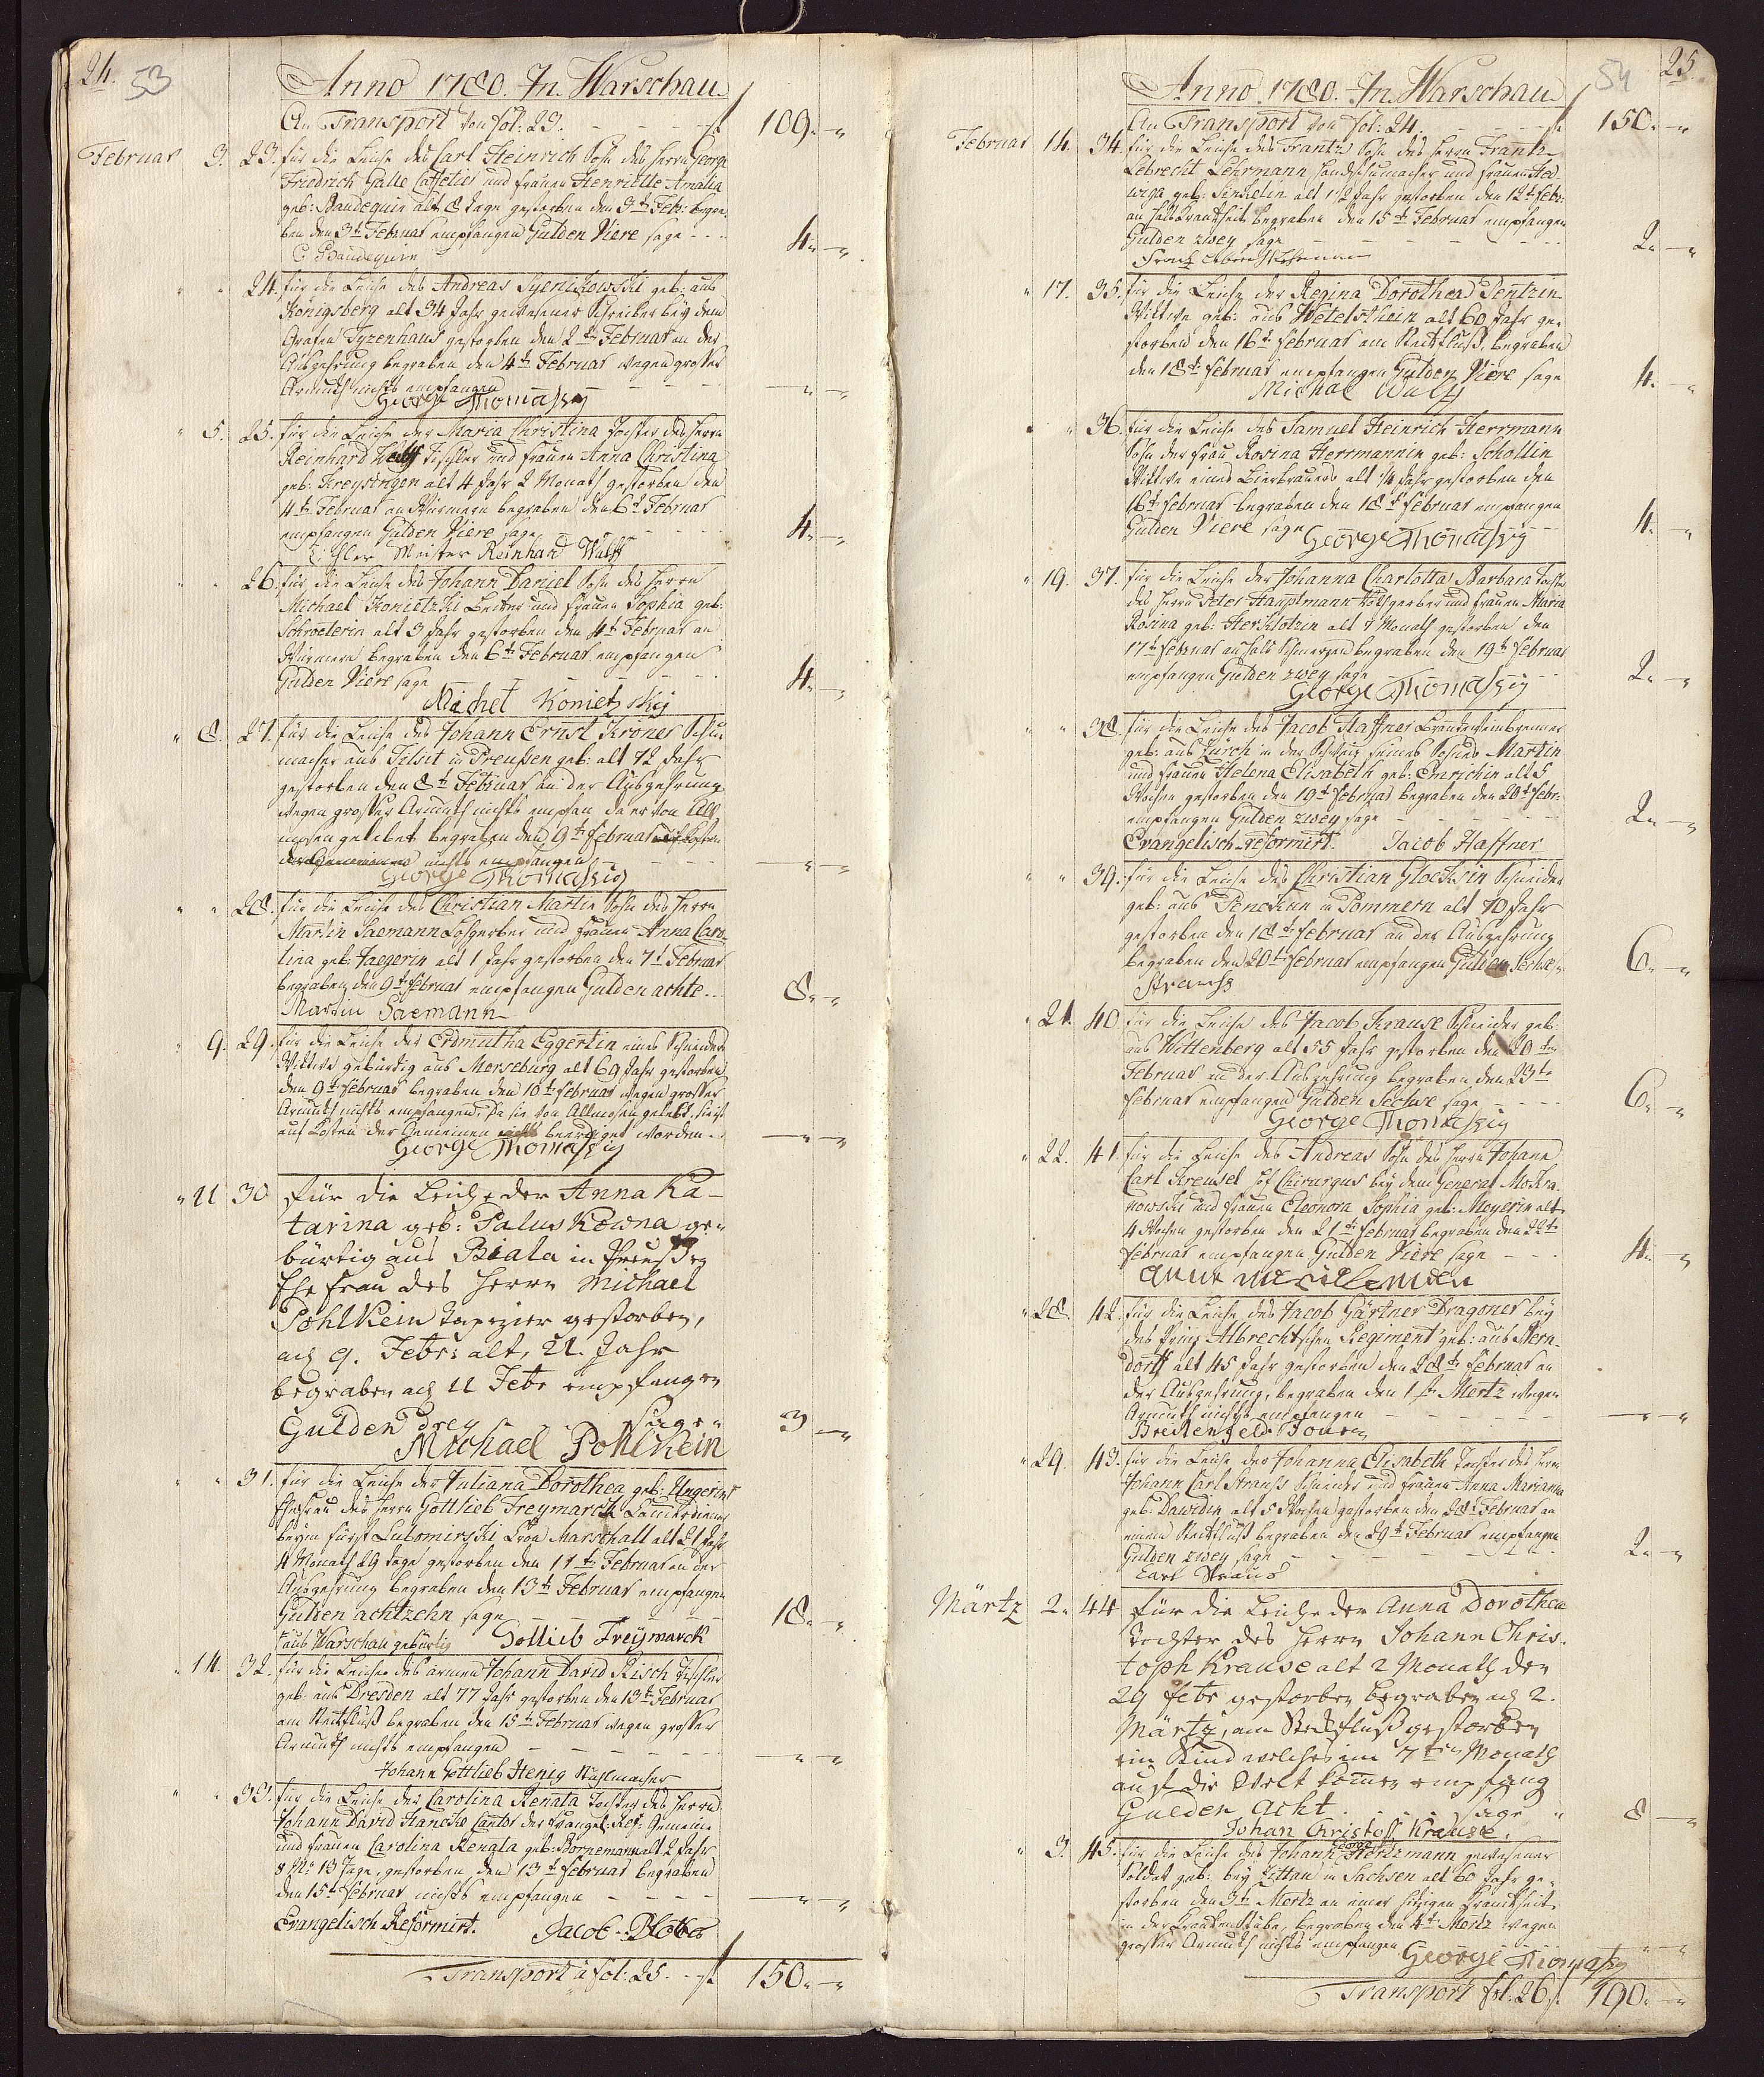 24. 53
Anno 1780. In Warschau
An Transport von fol: 23. f 109.-"
Februar 3. 23. für die Leiche des Carl Heinrich Sohn des Herrn George
Friedrich Galle Caffetier und Frauen Henriette Amalia
geb: Baudequin alt 8 Tage gestorben den 3t Feb: begra
ben den 3t Februar empfangen Gulden Viere sage 4.-"
C Baudequin
" " 24. für die Leiche des Andreas Syenikowski geb: aus
Königsberg alt 34 Jahr gewesener Schreiber bey dem
Grafen Tyzenhaus gestorben den 2t Februar an der
Auszehrung begraben den 4t Februar wegen grosser
Armuth nichts empfangen -"-
George Thomassig
" 5. 25. für die Leiche der Maria Christina Tochter des Herrn
Reinhard Wulff Tischler und Frauen Anna Christina
geb: Kreysingen alt 4 Jahr 2 Monath gestorben den
4t Februar an Würmern begraben den 6t Februar
empfangen Gulden Viere sage 4.-"
Meister Reinhard Wulff
" " 26. für die Leiche des Johann Daniel Sohn des Herrn
Michael Konietzki und Frauen Sophia geb:
Schroeterin alt 3 Jahr gestorben den 4t Februar an
Würmern begraben den 6t Februar empfangen
Gulden Viere sage 4.-"
Michel Konietzkij
" 8. 27. für die Leiche des Johann Ernst Kröner Schu
macher aus Tilsit in Preußen geb: alt 72 Jahr
gestorben den 8t Februar an der Auszehrung
wegen grosser Armuth nichts empfan da er von All
mosen gelebet begraben den 9t Februar
nichts empfangen -"-
George Thomassig
" " 28. für die Leiche des Christian Martin Sohn des Herrn
Martin Saemann Lohgerber und Frauen Anna Caro
lina geb: Jaegerin alt 1 Jahr gestorben den 7t Februar
begraben den 9t Februar empfangen Gulden achte.. 8.-"
Martin Saemann
" 9. 29. für die Leiche der Erdmutha Eggertin eines Schneiders
Wittwe gebürtig aus Merseburg alt 69 Jahr gestorben
den 9t Februar begraben den 10t Februar wegen grosser
Armuth nichts empfangen, da sie von Allmosen gelebt
auf Kosten der Gemeinen beerdiget worden. -"-
George Thomassig
" 11 30 für die Leiche der Anna Ka-
tarina geb: Paluskowna ge"
bürtig aus Biala in Preußen
Ehe Frau des Herrn Michael
Pohlkein Tapezier gestorben,
ad 9. Febr: alt, 21. Jahr
begraben ad 11 Febr empfangen
Gulden drey sage " 3 -"
Michael Pohlkein
" " 31. für die Leiche der Juliana Dorothea geb: Ungerin
Ehefrau des Herrn Gottlieb Freymarck
beym Fürst Lubomirski Cron Marschall alt 21 Jahr
4 Monath 29 Tage gestorben den 11t Februar an der
Auszehrung begraben den 13t Februar empfangen
Gulden achtzehn sage 18.-"
aus Warschau gebürtig Gottlieb Freymarck
" 14. 32. für die Leiche des armen Johann David Risch Tischler
geb: aus Dresden alt 77 Jahr gestorben den 13t Februar
am Steckfluß begraben den 15t Februar wegen grosser
Armuth nichts empfangen -"-
Johann Gottlieb Henig Stuhlmacher
" " 33. für die Leiche der Carolina Renata Tochter des Herrn
Johann David Hancke Cantor der Evangel: Ref: Gemeine
und Frauen Carolina Renata geb: Bornemann alt 2 Jahr
8 Mo 13 Tage, gestorben den 13t Februar begraben
den 15t Februar nichts empfangen -"-
Evangelisch Reformirt. Jacob
Transport a fol: 25. f 150.-"
54 25.
Anno 1780. In Warschau
An Transport von fol: 24. f 150.-"
Februar 14. 34. für die Leiche des Frantz Sohn des Herrn Frantz
Lebrecht Lehrmann Handschumacher und Frauen Hed
wiga geb: Sinkelin alt 1 1/2 Jahr gestorben den 12t Febr:
an Halskrankheit begraben den 15t Februar empfangen
Gulden zwey sage 2.-"
" 17. 35. für die Leiche der Regina Dorothea Pentzin
Wittwe geb: aus Wetelsthein alt 60 Jahr ge"
storben den 16t Februar am Steckfluß, begraben
den 18t Februar empfangen Gulden Viere sage 4.-"
Michal Wulf
" " 36. für die Leiche des Samuel Heinrich Herrmann
Sohn der Frau Rosina Herrmannin geb: Schollin
Wittwe eines Bierbrauers alt 1/4 Jahr gestorben den
16t Februar begraben den 18t Februar empfangen
Gulden Viere sage 4.-"
George Thomassig
" 19. 37. für die Leiche der Johanna Charlotta Barbara Tochter
des Herrn Peter Hauptmann Rothgerber und Frauen Maria
Rosina geb: Herklotzin alt 7 Monath gestorben den
17t Februar an Hals Schmerzen begraben den 19t Februar
empfangen Gulden zwey sage 2.-"
George Thomassig
" " 38. für die Leiche des Jacob Haffner Brandtweinbrenner
geb: aus Zürch in der Schweitz seines Sohnes Martin
und Frauen Helena Elisabeth geb: Emrichin alt 5
Wochen gestorben den 19t Februar begraben den 20t Febr:
empfangen Gulden zwey sage 2.-"
Evangelisch-reformirt. Jacob Haffner
" " 39. für die Leiche des Christian Gloeckin Schneider
geb: aus Penckun in Pommern alt 70 Jahr
gestorben den 18t Februar an der Auszehrung
begraben den 20t Februar empfangen Gulden Sechse 6.-"
Strauss
" 21. 40. für die Leiche des Jacob Krause Schneider geb:
aus Wittenberg alt 55 Jahr gestorben den 20t
Februar an der Auszehrung begraben den 23t
Februar empfangen Gulden Sechse sage 6.-"
George Thomassig
" 22. 41. für die Leiche des Andreas Sohn des Herrn Johann
Carl Kreusel Hof Chirurgus bey dem General Mokra
nowski und Frauen Eleonora Sophia geb: Meyerin alt
4 Wochen gestorben den 21t Februar begraben den 22t
Februar empfangen Gulden Viere sage 4.-"
" 28. 42. für die Leiche des Jacob Gärtner Dragoner bey
des Printz Albrechtschen Regiment geb: aus Bern
dorff alt 45 Jahr gestorben den 28t Februar an
der Auszehrung, begraben den 1t Mertz wegen
Armuth nichts empfangen -"-
Breitenfeld
" 29. 43. für die Leiche der Johanna Elisabeth Tochter des Herrn
Johann Carl Strauss Schneider und Frauen Anna Marianna
geb: Dawidin alt 5 Wochen gestorben den 28t Februar an
einem Steckfluß begraben den 29t Februar empfangen
Gulden zwey sage 2.-"
Carl Straus
Märtz 2. 44 für die Leiche der Anna Dorothea
Tochter des Herrn Johann Chris-
toph Krause alt 2 Monath den
29 Febr gestorben begraben ad 2.
Märtz, am Steckfluß gestorben
ein Kind welches im 7ten Monath
auf die Welt komen empfang
Gulden Acht sage " 8 -"
Johan Christoff Krause.
" 3. 45. für die Leiche des Johann George Hortzmann gewesener
Soldat geb: bey Zittau in Sachsen alt 60 Jahr ge"
storben den 3t Mertz an einer hitzigen Krankheit
in der Kranken Stube, begraben den 4t Mertz wegen
grosser Armuth nichts empfangen -"-
George Thomassig
Transport fol. 26 f. 190.-"